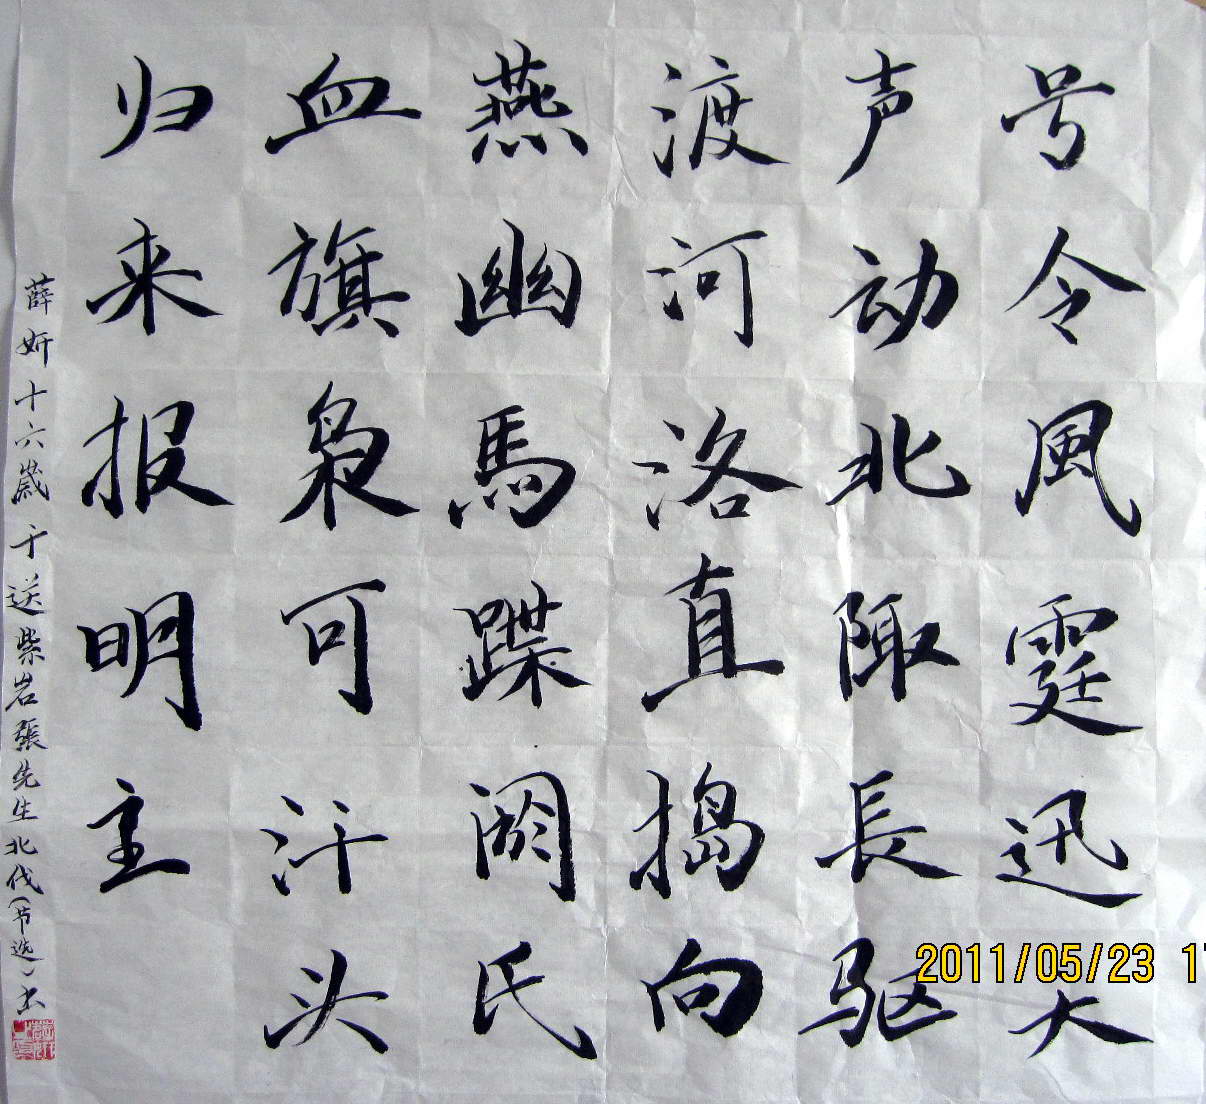 号令風霆迅大
声动北陬長驱
渡河洛直搗向
燕幽馬蹀阏氏
血旗枭可汗头
归来报明主
薛妍十六歲于送柴岩張先生北伐(节选)书
2011/05/23 1